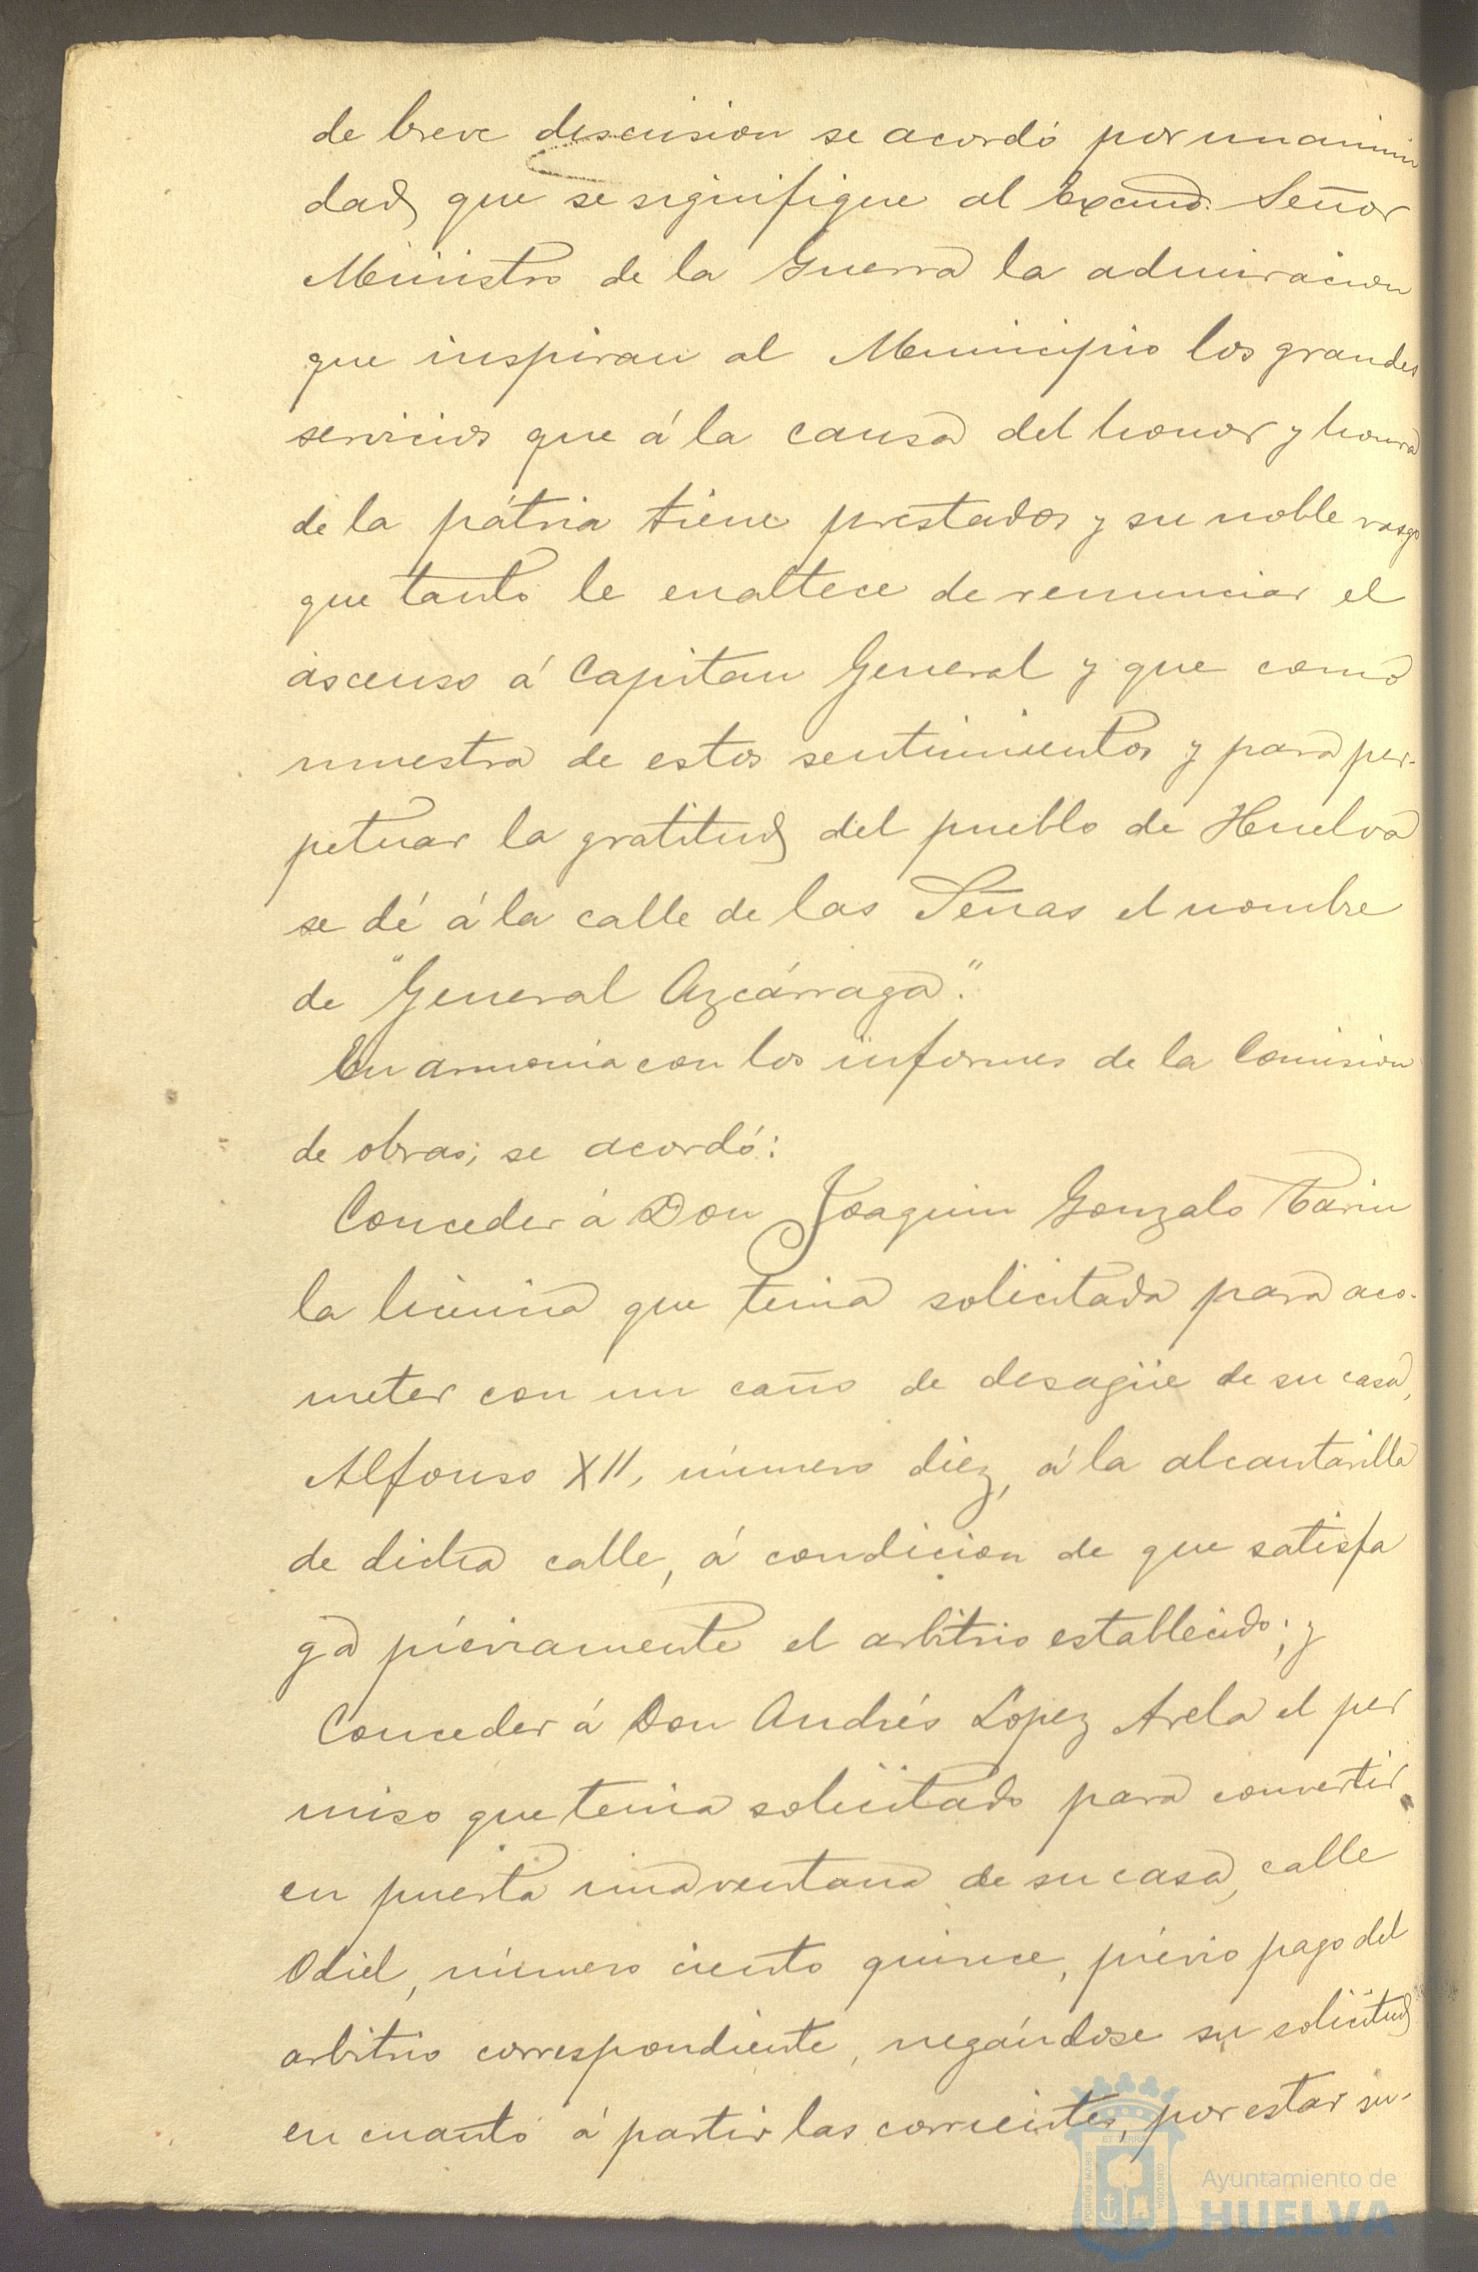 de breve discusion se acordó por unanimi
dad que se signifique al Excmo. Señor
Ministro de la Guerra la admiracion
que inspiran al Municipio los grandes
servicios que á la causa del honor y honra
de la pátria tiene prestados y su noble rasgo
que tanto le enaltece de renunciar el
ascenso á Capitan General y que como
muestra de estos sentimientos y para per-
petuar la gratitud del pueblo de Huelva
se dé á la calle de las Señas el nombre
de "General Azcárraga".
En armonia con los informes de la Comision
de obras; se acordó:
Conceder á Don Joaquin Gonzalo Tarin
la licencia que tenia solicitada para aco-
meter con un caño de desagüe de su casa,
Alfonso XII, número diez, á la alcantarilla
de dicha calle, á condicion de que satisfa
ga préviamente el arbitrio establecido; y
Conceder á Don Andrés Lopez Arela el per
miso que tenia solicitado para convertir
en puerta una ventana de su casa, calle
Odiel, número ciento quince, prévio pago del
arbitrio correspondiente, negándose su solicitud
en cuanto á partir las corrientes, por estar su-
Ayuntamiento de
HUELVA